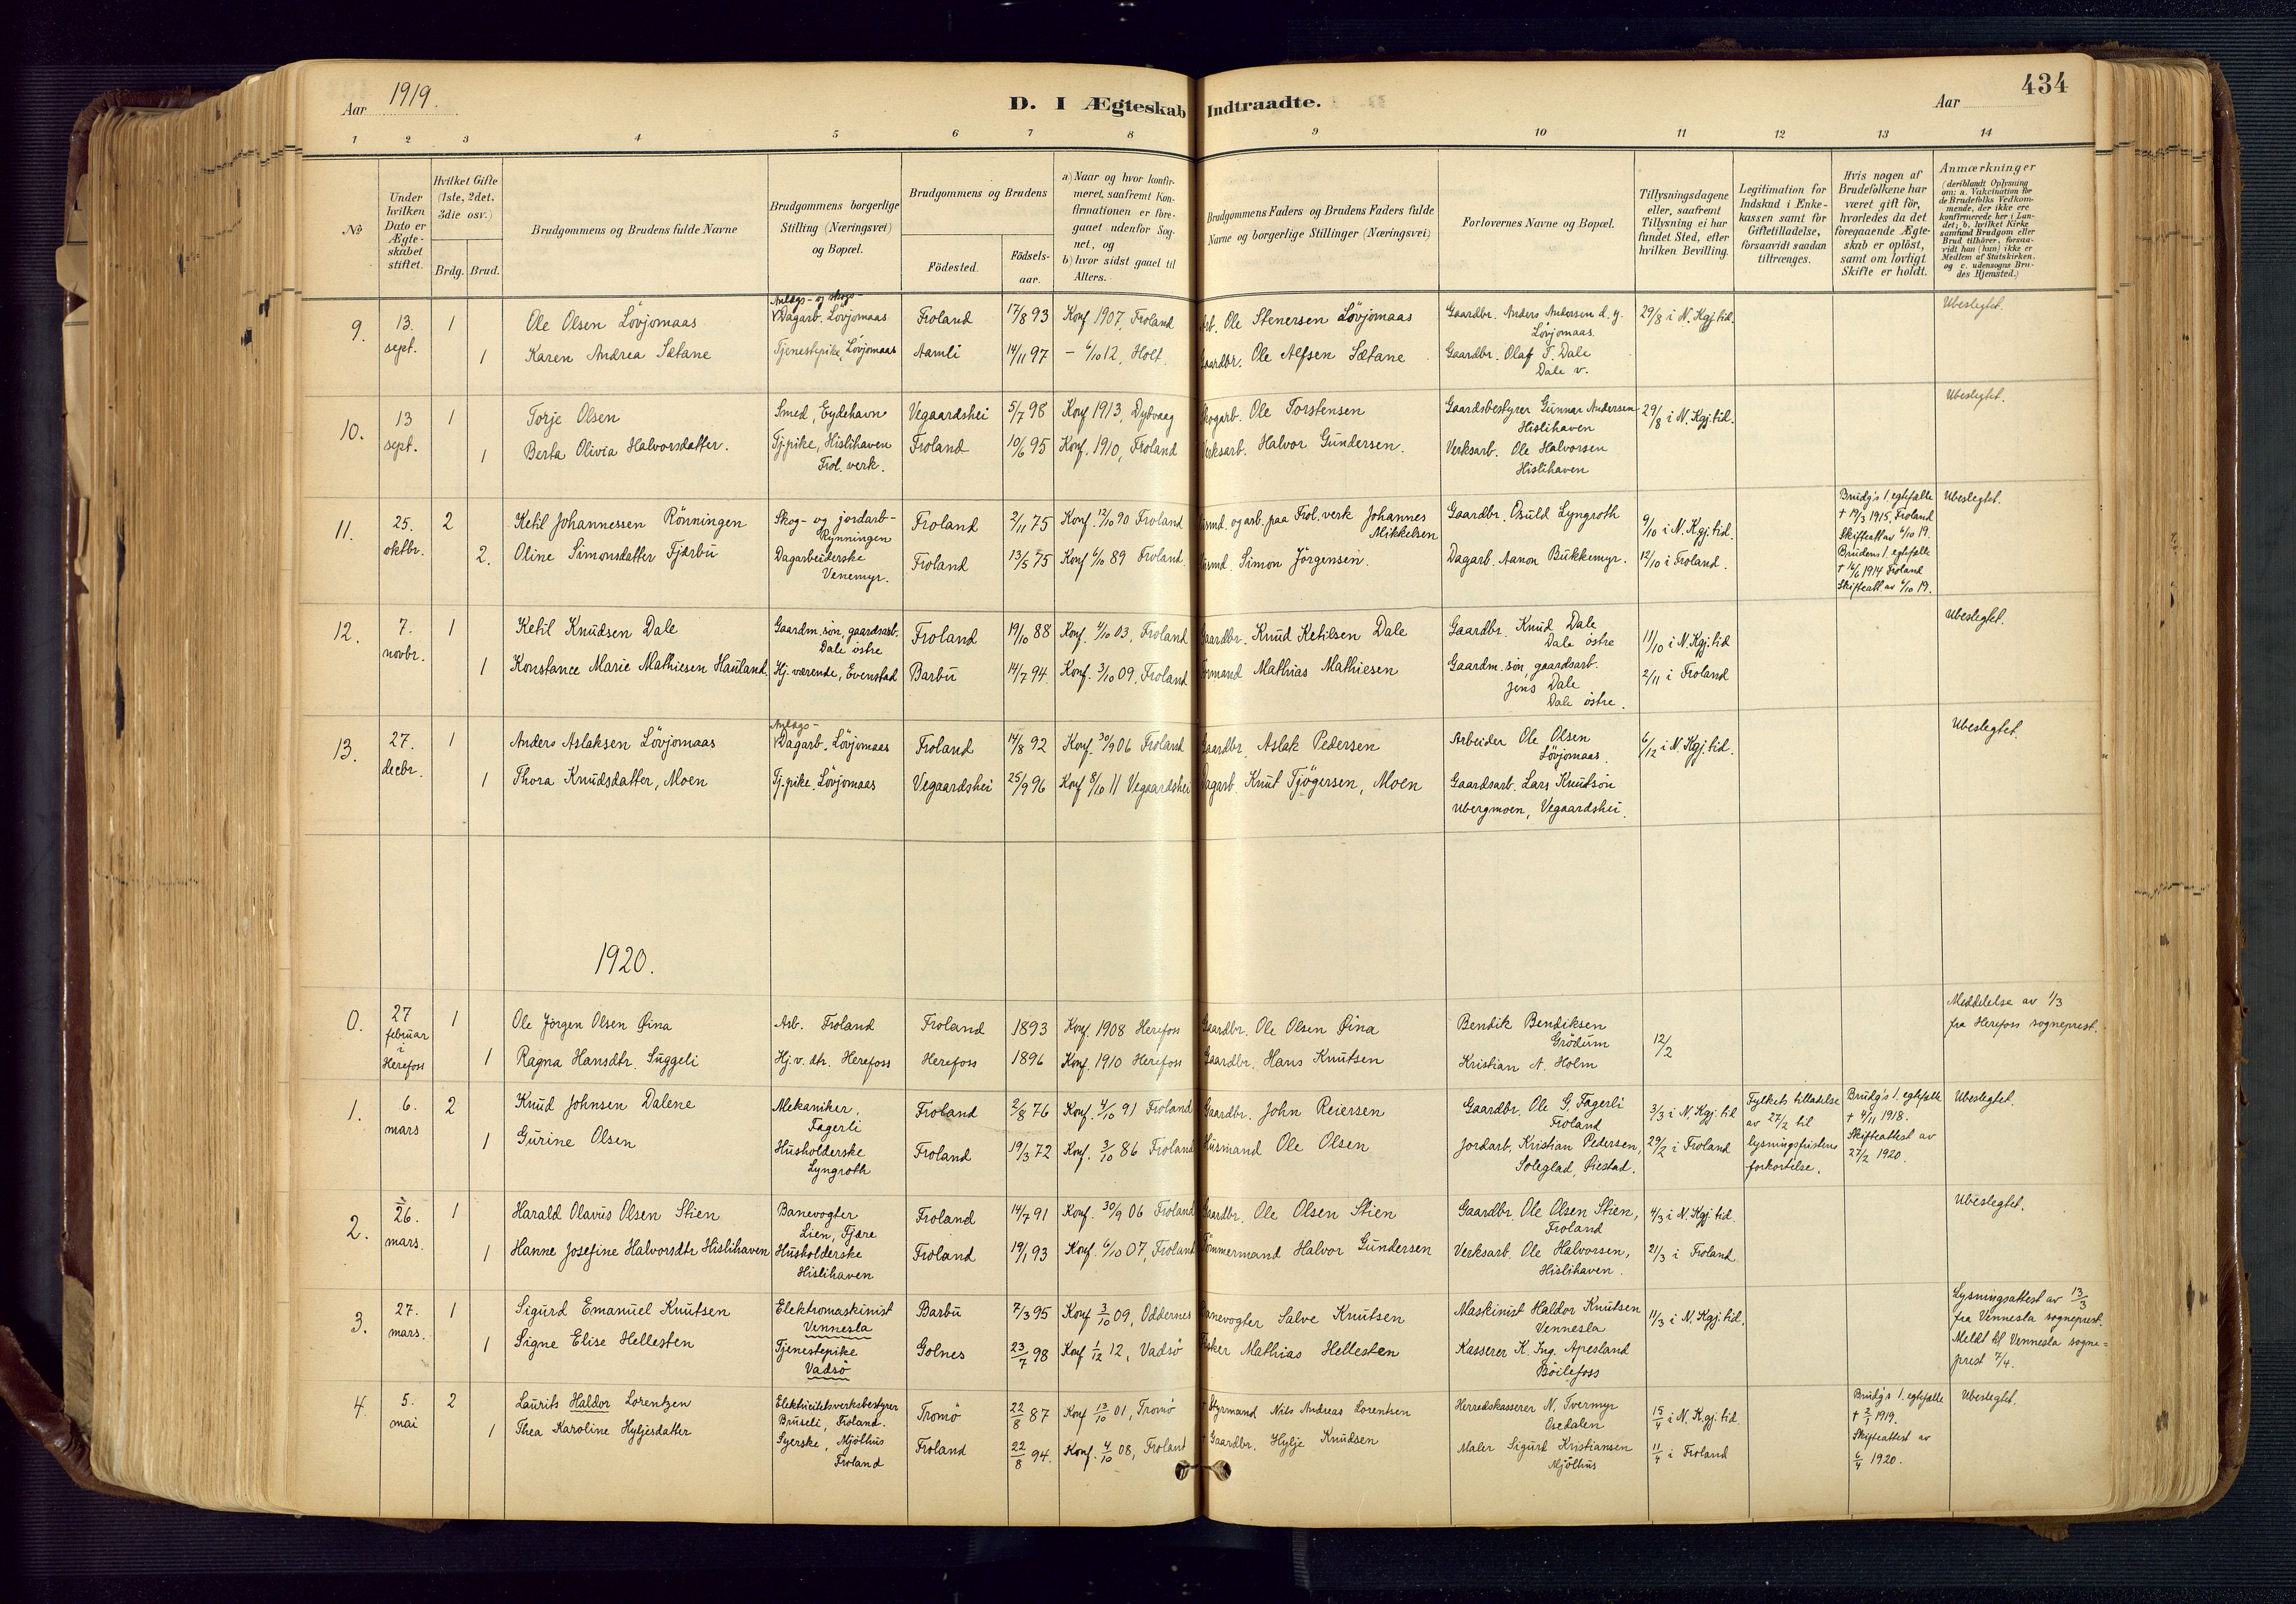 Aar 1919.
D. I Ægteskab Indtraadte.
Aar
434
1 2 3 4 5 6 7 8 9 10 11 12 13 14
№
Under hvilken Dato er Ægteskabet stiftet.
Hvilket Gifte (1ste, 2det, 3die osv.)
Brdg. Brud.
Brudgommens og Brudens fulde Navne
Brudgommens borgerlige Stilling (Næringsvei) og Bopæl.
Brudgommens og Brudens
Födested.
Födselsaar.
a) Naar og hvor konfirmeret, saafremt Konfirmationen er foregaaet udenfor Sognet, og
b) hvor sidst gaaet til Alters.
Brudgommens Faders og Brudens Faders fulde Navne og borgerlige Stillinger (Næringsvei)
Forlovernes Navne og Bopæl.
Tillysningsdagene eller, saafremt Tillysning ei har fundet Sted, efter hvilken Bevilling.
Legitimation for Indskud i Enkekassen samt for Giftetilladelse, forsaavidt saadan tiltrænges.
Hvis nogen af Brudefolkene har været gift för, hvorledes da det foregaaende Ægteskab er oplöst, samt om lovligt Skifte er holdt.
Anmærkninger
(deriblandt Oplysning om: a. Vakcination for de Brudefolks Vedkommende, der ikke ere konfirmerede her i Landet; b. hvilket Kirkesamfund Brudgom eller Brud tilhörer, forsaavidt han (hun) ikke er Medlem af Statskirken. og c. udensogns Brudes Hjemsted.)
9. 13. sept. 1 Ole Olsen Lövjomaas Anlægs- og skogs- Dagarb. Lövjomaas Froland 17/8 93 Konf. 1907, Froland Arb. Ole Stenersen Lövjomaas Gaardbr. Anders Andersen d.y. Lövjomaas. 29/8 i N. Kgj.tid. Ubeslegtet.
1 Karen Andrea Sætane Tjenestepike, Lövjomaas Aamli 14/11 97 – 6/10 12, Holt. Gaardbr. Ole Alfsen Sætane Gaardbr. Olaf T. Dale Dale v.
10. 13 sept. 1 Torje Olsen Smed, Eydehavn Vegaardshei 5/7 98 Konf 1913, Dybvaag Skogarb. Ole Torstensen Gaardsbestyrer Gunnar Andersen Hislihaven 29/8 i N. Kgj.tid. Ubeslegtet.
1 Berta Olivia Halvorsdatter. Tj.pike, Hislihaven Frol. verk. Froland 10/6 95 Konf. 1910, Froland Verksarb. Halvor Gundersen. Verksarb. Ole Halvorsen Hislihaven
11. 25. oktbr. 2 Ketil Johannessen Rönningen Skog- og jordarb- Rynningen Froland 2/11 75 Konf. 12/10 90 Froland Husmd. og arb. paa Frol. verk Johannes Mikkelsen Gaardbr. Osuld Lyngroth 9/10 i N. Kgj.tid. Brudg's 1. egtefælle † 19/3 1915, Froland Skifteatt av 6/10 19. Ubeslegtet.
2. Oline Simonsdatter Fjærbu Dagarbeiderske Venemyr. Froland 13/5 75 Konf 6/10 89 Froland. Husmd. Simon Jörgensen. Dagarb. Aanon Bukkemyr. 12/10 i Froland. Brudens 1. egtefælle † 16/6 1914 Froland Skifteatt. av 6/10 19.
12. 7. novbr. 1 Ketil Knudsen Dale Gaardm.sön, gaardsarb. Dale östre Froland 19/10 88 Konf. 4/10 03, Froland Gaardbr. Knud Ketilsen Dale Gaardbr. Knud Dale Dale östre 11/10 i N. Kgj.tid Ubeslegtet.
1 Konstance Marie Mathiesen Hauland. Hj. værende, Evenstad Barbu 14/7 94. Konf. 3/10 09, Froland Formand Mathias Mathiesen Gaardm.sön, gaardsarb. Jens Dale Dale östre. 2/11 i Froland
13. 27. decbr. 1 Anders Aslaksen Lövjomaas Anlægs- Dagarb. Lövjomaas Froland 14/8 92 Konf. 30/9 06 Froland Gaardbr. Aslak Pedersen Arbeider Ole Olsen Lövjomaas. 6/12 i N. Kgj.tid. Ubeslegtet.
1 Thora Knudsdatter, Moen Tj.pike. Lövjomaas Vegaardshei 25/9 96 Konf 8/10 11 Vegaardshei Dagarb. Knut Tjögersen, Moen Gaardsarb. Lars Knudsön Ubergmoen, Vegaardshei.
1920.
0. 27 februar i Herefoss 1 Ole Jörgen Olsen Øina Arb. Froland Froland 1893 Konf. 1908 Herefoss Gaardbr. Ole Olsen Øina Bendik Bendiksen Grödum 12/2 Meddelelse av 1/3 fra Herefoss sogneprest.
1 Ragna Hansdtr. Suggeli Hj. v. dtr. Herefoss Herefoss 1896 Konf. 1910 Herefoss Gaardbr. Hans Knutsen Kristian A. Holm
1. 6. mars 2 Knud Johnsen Dalene Mekaniker. Fagerli Froland 2/8 76 Konf. 4/10 91 Froland Gaardbr. John Reiersen Gaardbr. Ole G. Fagerli Froland 3/3 i N. Kgj. tid Fylkets tilladelse av 27/2 til lysningsfristens forkortelse. Brudg's 1. egtefælle † 4/11 1918. Skifteattest av 27/2 1920. Ubeslegtet.
1 Gurine Olsen Husholderske Lyngroth Froland 19/3 72 Konf. 3/10 86 Froland Husmand Ole Olsen Jordarb. Kristian Pedersen, Soleglad, Øiestad. 29/2 i Froland
2. 26. mars. 1 Harald Olavus Olsen Stien Banevogter Lien, Fjære Froland 14/7 91 Konf. 30/9 06 Froland Gaardbr. Ole Olsen Stien Gaardbr. Ole Olsen Stien, Froland 4/3 i N. Kgj.tid. Ubeslegtet.
1 Hanne Josefine Halvorsdtr Hislihaven Husholderske Hislihaven Froland 19/1 93 Konf. 6/10 07, Froland Tömmermand Halvor Gundersen Verksarb. Ole Halvorsen, Hislihaven. 21/3 i Froland
3. 27. mars. 1 Sigurd Emanuel Knutsen Elektromaskinist Vennesla Barbu 7/3 95 Konf 3/10 09, Oddernes Banevogter Salve Knutsen Maskinist Haldor Knutsen Vennesla 11/3 i N. Kgj.tid. Lysningsattest av 13/3 fra Vennesla sogneprest. Meldt til Vennesla sogneprest 7/4.
1 Signe Elise Hellesten Tjenestepike Vadsö Golnes 23/7 98 Konf 1/12 12, Vadsö Fisker Mathias Hellesten Kasserer K. Ing. Apesland Böilefoss
4. 5. mai 2 Laurits Haldor Lorentzen Elektricitetsverksbestyrer Bruseli, Froland. Tromö 22/8 87 Konf 13/10 01, Tromö † Styrmand Nils Andreas Lorentsen Herredskasserer N. Tvermyr Osedalen 15/4 i N. Kgj.tid. Brudg's 1. egtefælle † 2/1 1919. Skifteattest av 6/4 1920. Ubeslegtet.
1 Thea Karoline Hyljesdatter Syerske, Mjölhus Froland Froland 22/8 94. Konf. 4/10 08, Froland † Gaardbr. Hylje Knudsen Maler Sigurd Kristiansen Mjölhus 11/4 i Froland